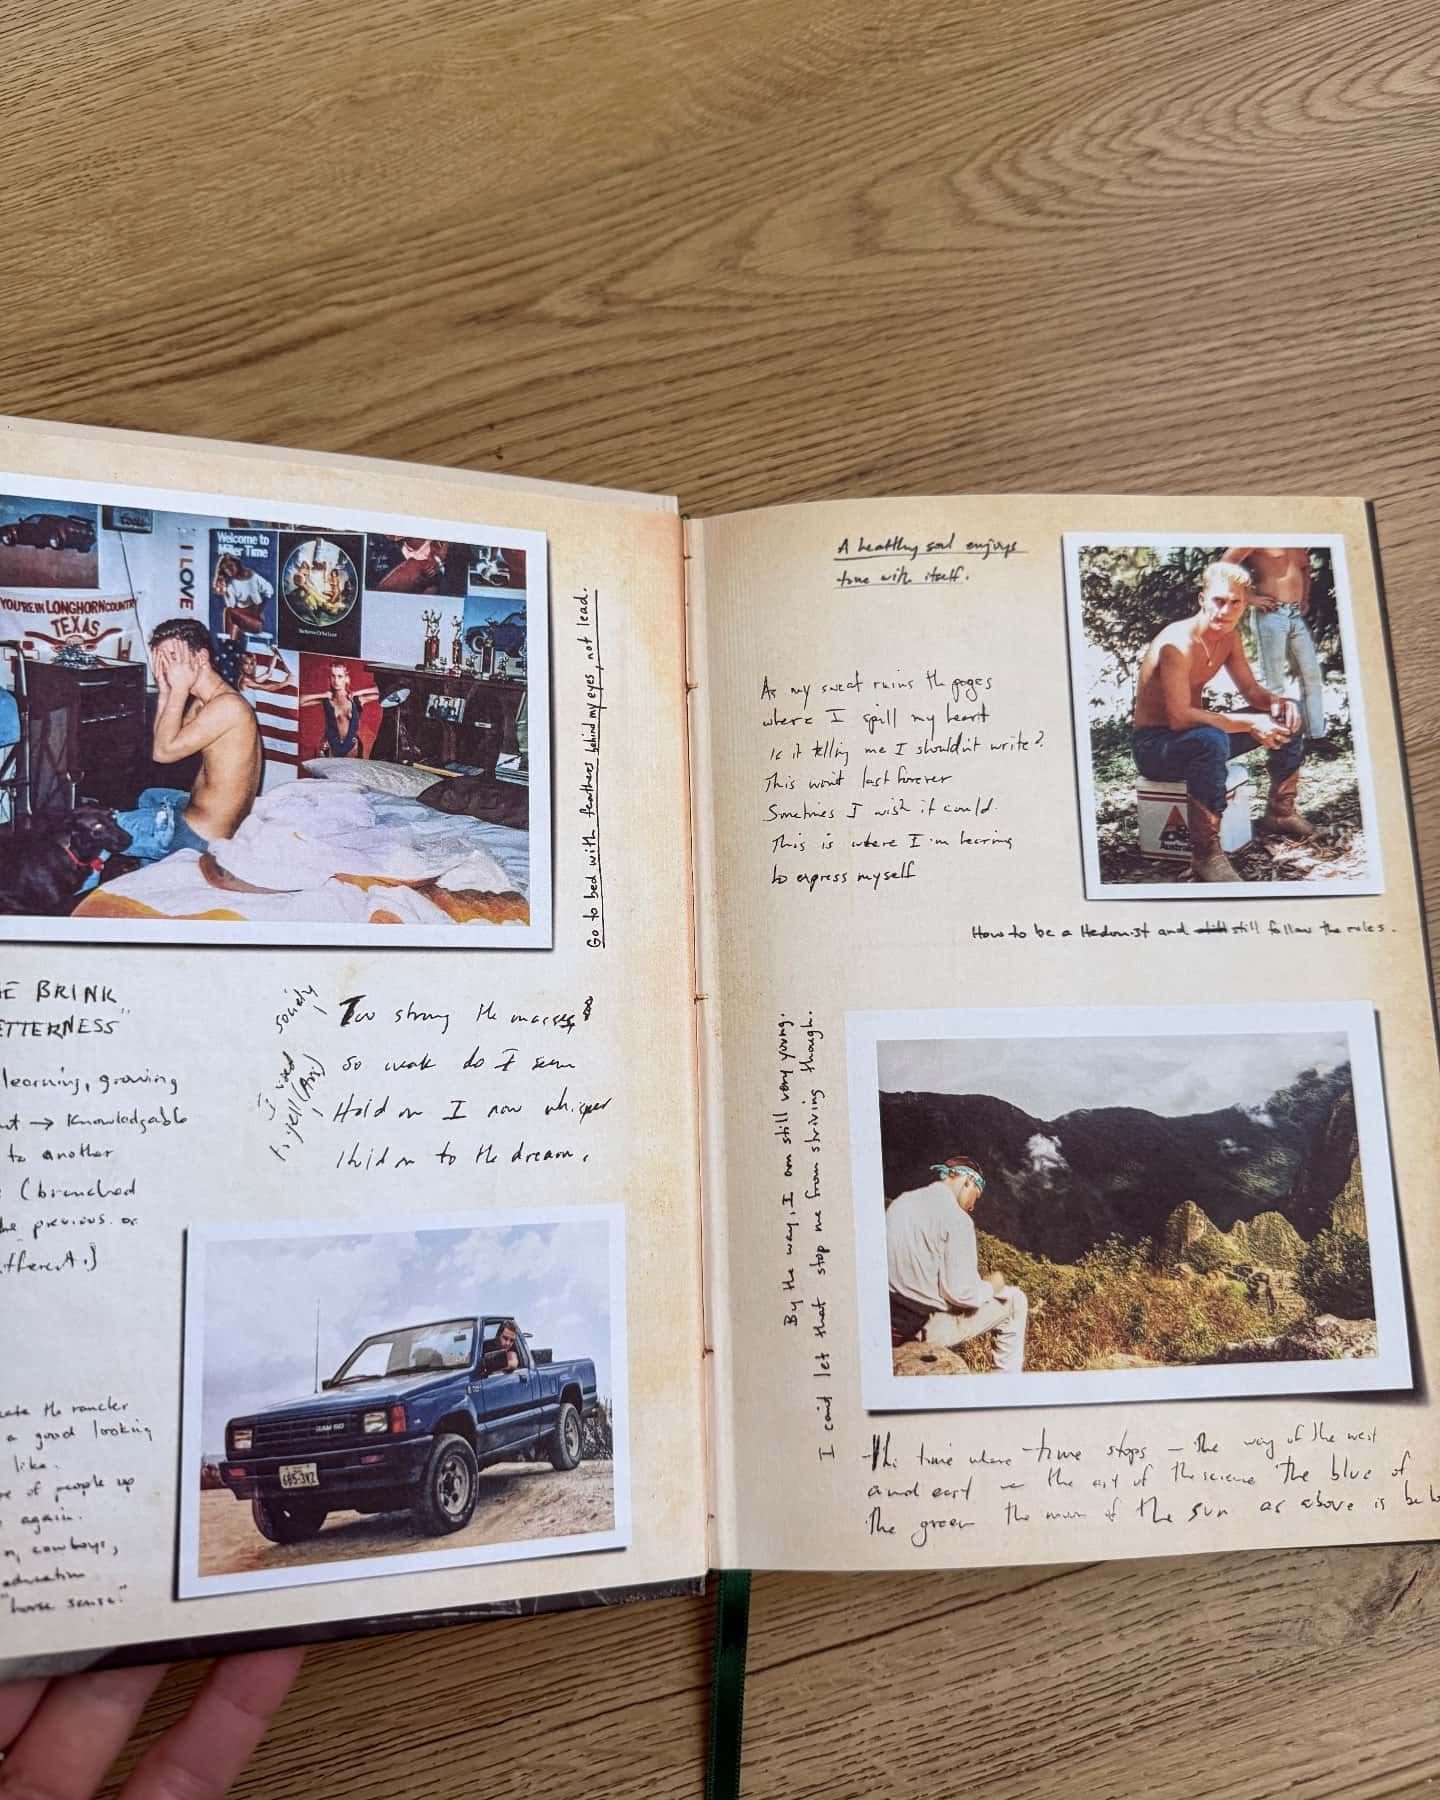 Welcome to
Miller Time
I LOVE
YOU'RE IN LONGHORN COUNTRY
TEXAS
Go to bed with feathers behind my eyes, not lead.
E BRINK
ETTERNESS"
learning, growing
→ Knowledgable
to another
(branched
the previous. or
fferent.)
society
I used
to yell
Too strong the masses
so weak do I seem
Hold on I now whisper
Hold on to the dream.
RAM 50
6B5-3VZ
the rancher
a good looking
like.
of people up
again.
cowboys,
education
"horse sense."
A healthy soul enjoys
time with itself.
As my sweat ruins the pages
where I spill my heart
is it telling me I shouldn't write?
This won't last forever
Sometimes I wish it could.
This is where I'm learning
to express myself
Australia
How to be a Hedonist and still follow the rules.
By the way, I am still very young.
I can't let that stop me from striving though.
time where time stops – the way of the west
and east the art of the science the blue of
the green the moon of the sun as above is below